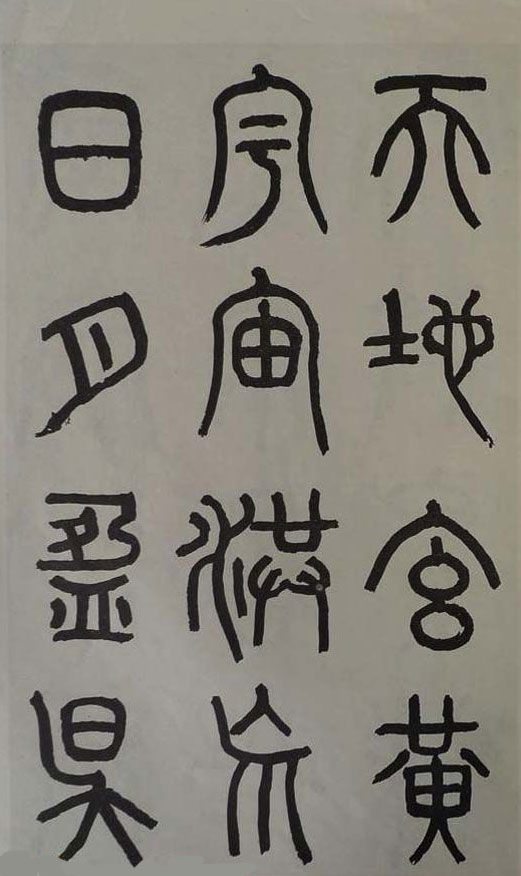 天地玄黃
宇宙洪巟
日月盈昃